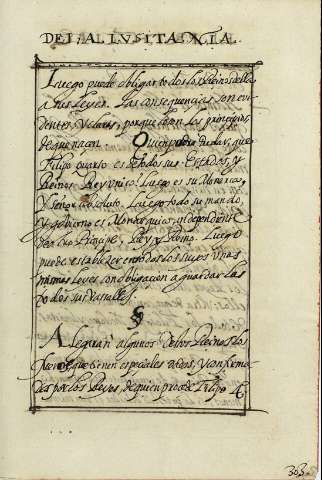 DE LA LVSITANIA.
Luego puede obligar todos los Reinos dellos
a sus Leyes. Las consequencias son evi-
dentes, y claras, porque lo son los principios,
de que nacen. Quien podrá dudar, que
Filipo quarto es de todos sus Estados, y
Reinos Rey vnico? Luego es su Monarca,
y Señor absoluto. Luego todo su mando,
y gobierno es Monarquico, independiente
de otro Principe, Rey, y Reino. Luego
puede establezer en todos los suyos vnas
mismas Leyes, con obligacion a guardarlas
todos sus Vasallos.
§
Alegarán algunos destos Reinos los
fueros, que tienen especiales dados, y confirma-
dos por los Reyes, de quien procede Filipo 4.
303